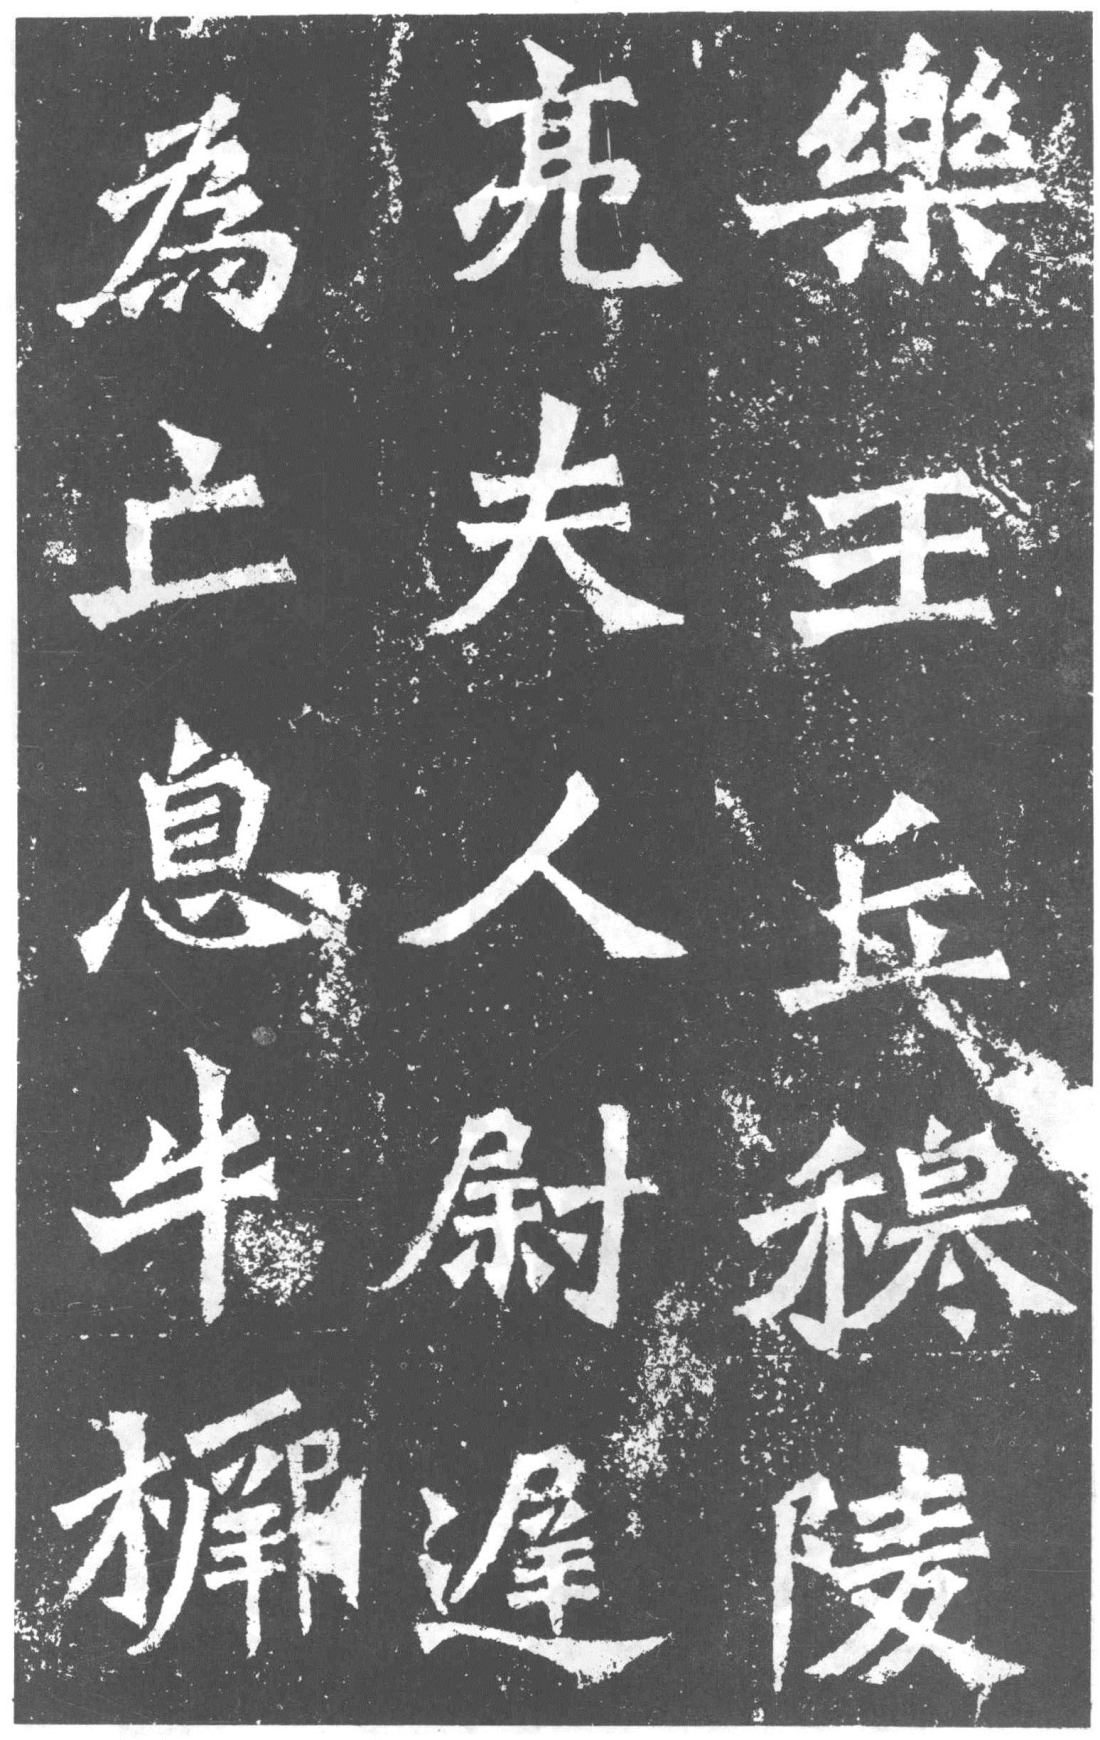 樂王丘穆陵
亮夫人尉遲
為亡息牛橛